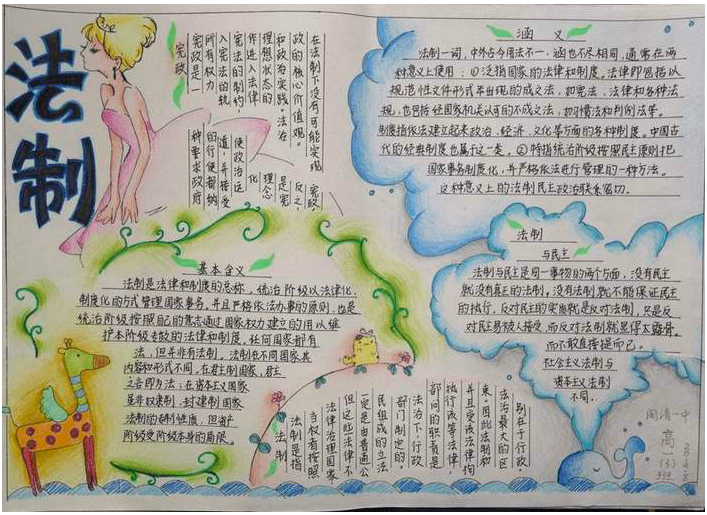 法制
宪政
宪政是一
所有权力
入宪法的统
宪法的制约
作进入法律
理想状态的
和政治实践。法治
政的核心价值观。
在法制下没有可能实现
种要求政府
的行使都纳
道，并接受
使政治运
化
理念
是宪
反之，
宪政，
涵 义
法制一词，中外古今用法不一，涵也不尽相同，通常在两
种意义上使用：①泛指国家的法律和制度。法律即包括以
规范性文件形式车出现的成文法，如宪法、法律和各种法
规，也包括经国家机关认可的不成文法，如习惯法和判例法等。
制度指依法建立起来政治、经济、文化等方面的各种制度。中国古
代的经典制度也属于这一类。②特指统治阶级按照民主原则把
国家事务制度化、并严格依法进行管理的一种方法。
这种意义上的法制民主政治联系密切。
基本含义
法制是法律和制度的总称。统治阶级以法律化、
制度化的方式管理国家事务，并且严格依法办事的原则，也是
统治阶级按照自己的意志通过国家权力建立的用以维
护本阶级专政的法律和制度，任何国家都有
法，但并非有法制，法制在不同国家其
内容和形式不同，在君主制国家，君主
之言即为法；在资本主义国家
虽非奴隶制，封建制国家
法制的专制性质，但资产
阶级受阶级本身的局限。
法制
与民主
法制与民主是同一事物的两个方面，没有民主
就没有真正的法制，没有法制就不能保证民主
的执行。反对民主的实质就是反对法制，只是反
对民主易被人接受，而反对法制就显得太露骨。
而不敢直接提而已。
社会主义法制与
资本主义法制
不同。
法制
法制是指
当权者按照
法律治理国家
但这些法律不
一定是由普通公
民组成的立法
部门制定的。
法治下，行政
部门的职责是
执行该等法律，
并且受该法律拘
束。因此法制和
法治最大的区
别在于行政
闽清一中
高一(3)